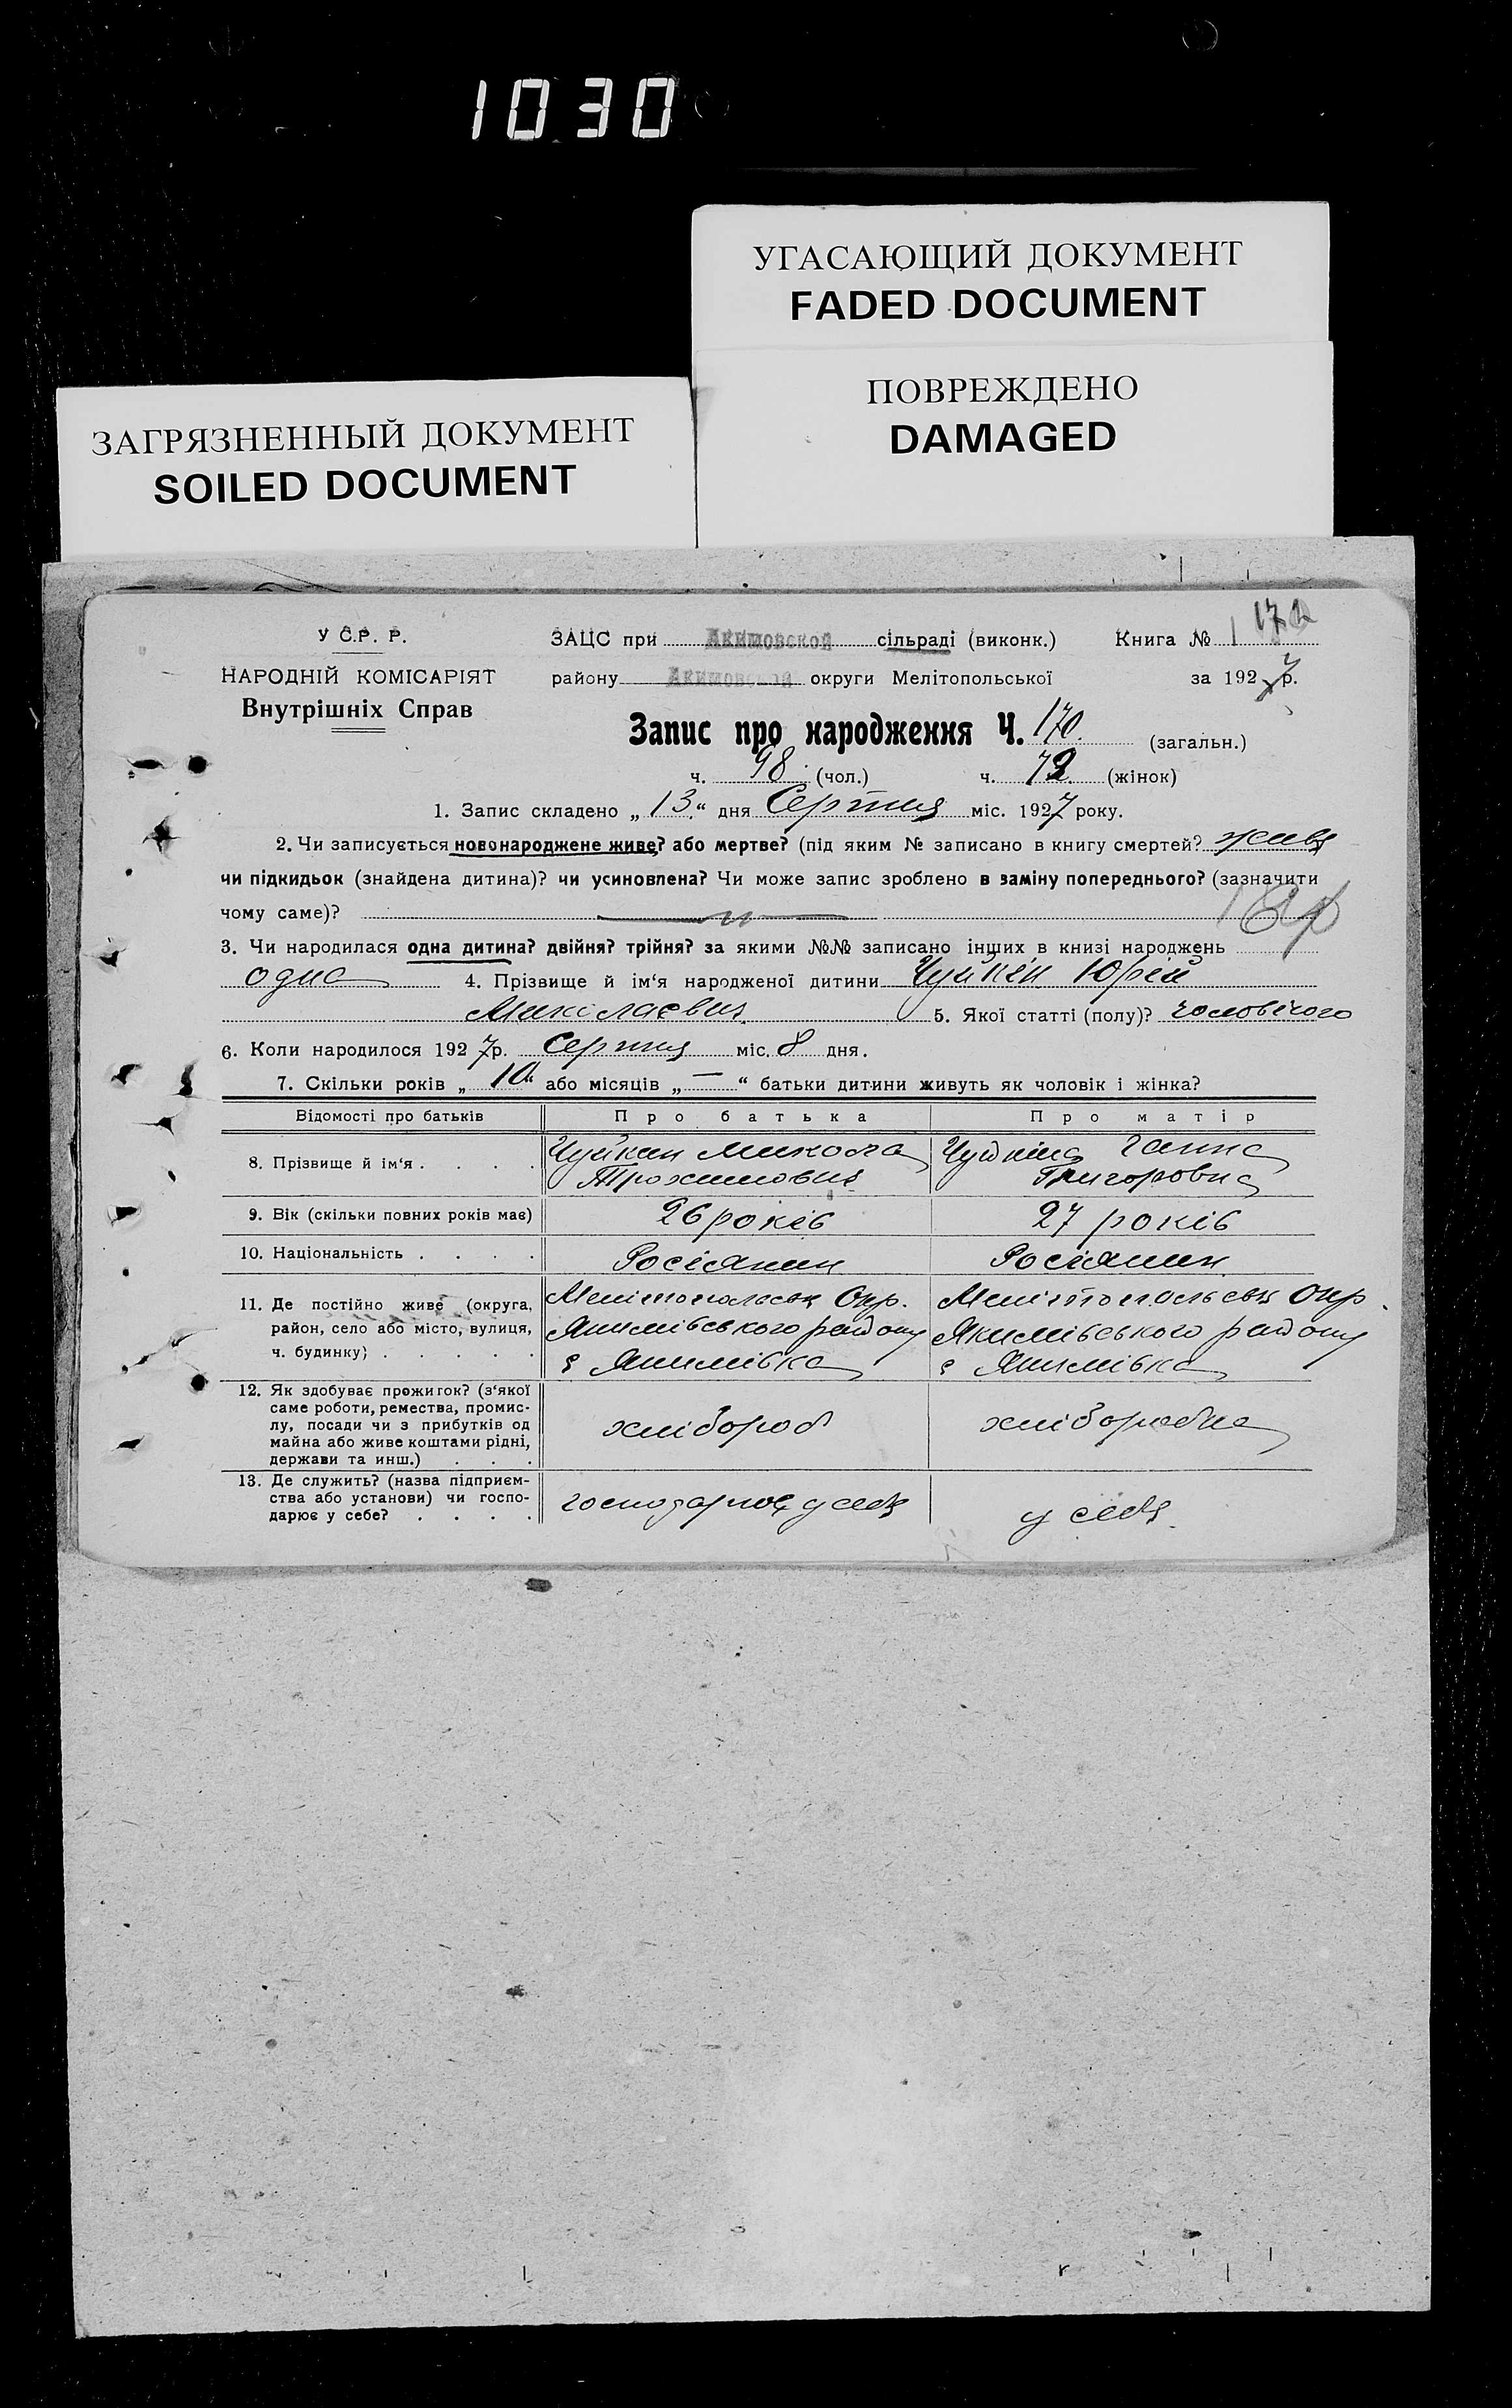 1030
УГАСАЮЩИЙ ДОКУМЕНТ
FADED DOCUMENT
ПОВРЕЖДЕНО
DAMAGED
ЗАГРЯЗНЕННЫЙ ДОКУМЕНТ
SOILED DOCUMENT
У С.Р. Р.
НАРОДНІЙ КОМІСАРІЯТ
Внутрішніх Справ
ЗАЦС при Акимовской сільраді (виконк.) Книга № 1
району Акимовской округи Мелітопольської за 1927 р.
Запис про народження Ч. 170. (загальн.)
ч. 98 (чол.) ч. 72 (жінок)
1. Запис складено „13“ дня Серпня міс. 1927 року.
2. Чи записується новонароджене живе? або мертве? (під яким № записано в книгу смертей? живе
чи підкидьок (знайдена дитина)? чи усиновлена? Чи може запис зроблено в заміну попереднього? (зазначити
чому саме)?
3. Чи народилася одна дитина? двійня? трійня? за якими №№ записано інших в книзі народжень
одна 4. Прізвище й ім‘я народженої дитини Чуйкін Юрій
Миколаєвич 5. Якої статті (полу)? чоловічого
6. Коли народилося 1927 р. Серпня міс. 8 дня.
7. Скільки років „10“ або місяців „—“ батьки дитини живуть як чоловік і жінка?
Відомості про батьків Про батька Про матір
8. Прізвище й ім‘я . . . . Чуйкин Микола Чуйкіна Ганна
Трохимович Григоровна
9. Вік (скільки повних років має) 26 років 27 років
10. Національність . . . . Росіянин Росіянин
11. Де постійно живе (округа, Мелітопольськ Окр. Мелітопольськ Окр.
район, село або місто, вулиця, Якимівського району Якимівського району
ч. будинку) . . . . . с Якимівка с Якимівка
12. Як здобуває прожиток? (з‘якої
саме роботи, ремества, промис-
лу, посади чи з прибутків од хлібороб хліборобка
майна або живе коштами рідні,
держави та инш.) . . .
13. Де служить? (назва підприєм-
ства або установи) чи госпо- господарює у себе у себе
дарює у себе? . . . .